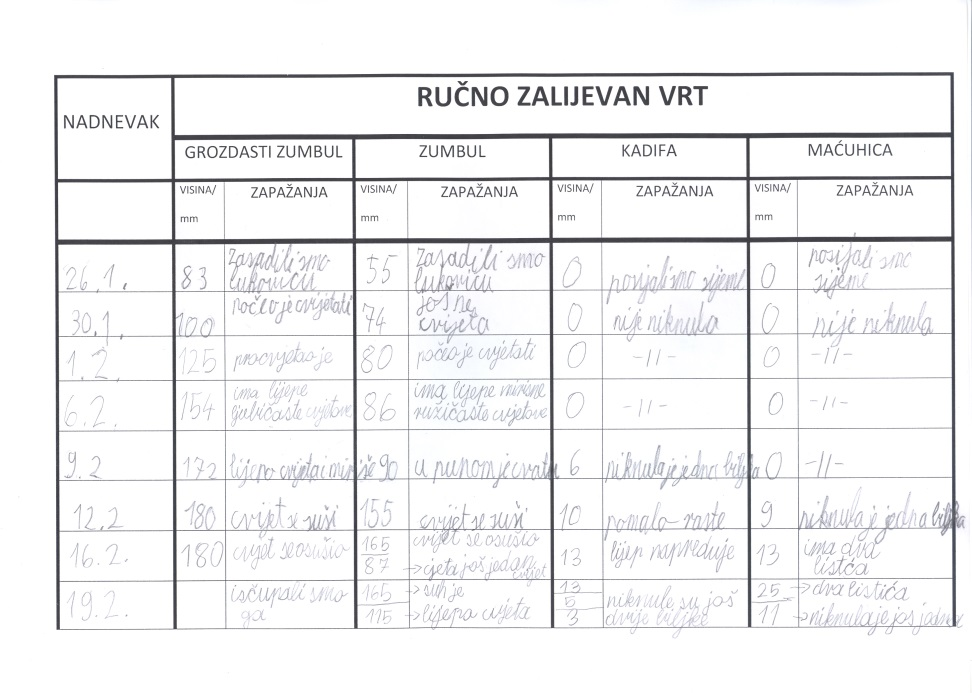 RUČNO ZALIJEVAN VRT
NADNEVAK
GROZDASTI ZUMBUL ZUMBUL KADIFA MAĆUHICA
VISINA/ mm ZAPAŽANJA VISINA/ mm ZAPAŽANJA VISINA/ mm ZAPAŽANJA VISINA/ mm ZAPAŽANJA
26.1. 83 zasadili smo lukovicu 55 zasadili smo lukovicu 0 posijali smo sjeme 0 posijali smo sjeme
30.1. 100 počeo je cvjetati 74 još ne cvjeta 0 nije niknula 0 nije niknula
1.2. 125 procvjetao je 80 počeo je cvjetati 0 -11- 0 -11-
6.2. 154 ima lijepe ljubičaste cvjetove 86 ima lijepe mirisne ružičaste cvjetove 0 -11- 0 -11-
9.2 172 lijepo cvjeta i miriše 90 u punom je cvatu 6 niknula je jedna biljka 0 -11-
12.2 180 cvijet se suši 155 cvijet se suši 10 pomalo raste 9 niknula je jedna biljka
16.2. 180 cvjet se osušio 165 cvijet se osušio 13 lijep napreduje 13 ima dva listća
87 → cjeta još jedan cvijet
19.2. isčupali smo ga 165 → suh je 13 niknule su još dvije biljke 25 → dva listića
115 → lijepo cvjeta 5 3 11 → niknula je još jedna